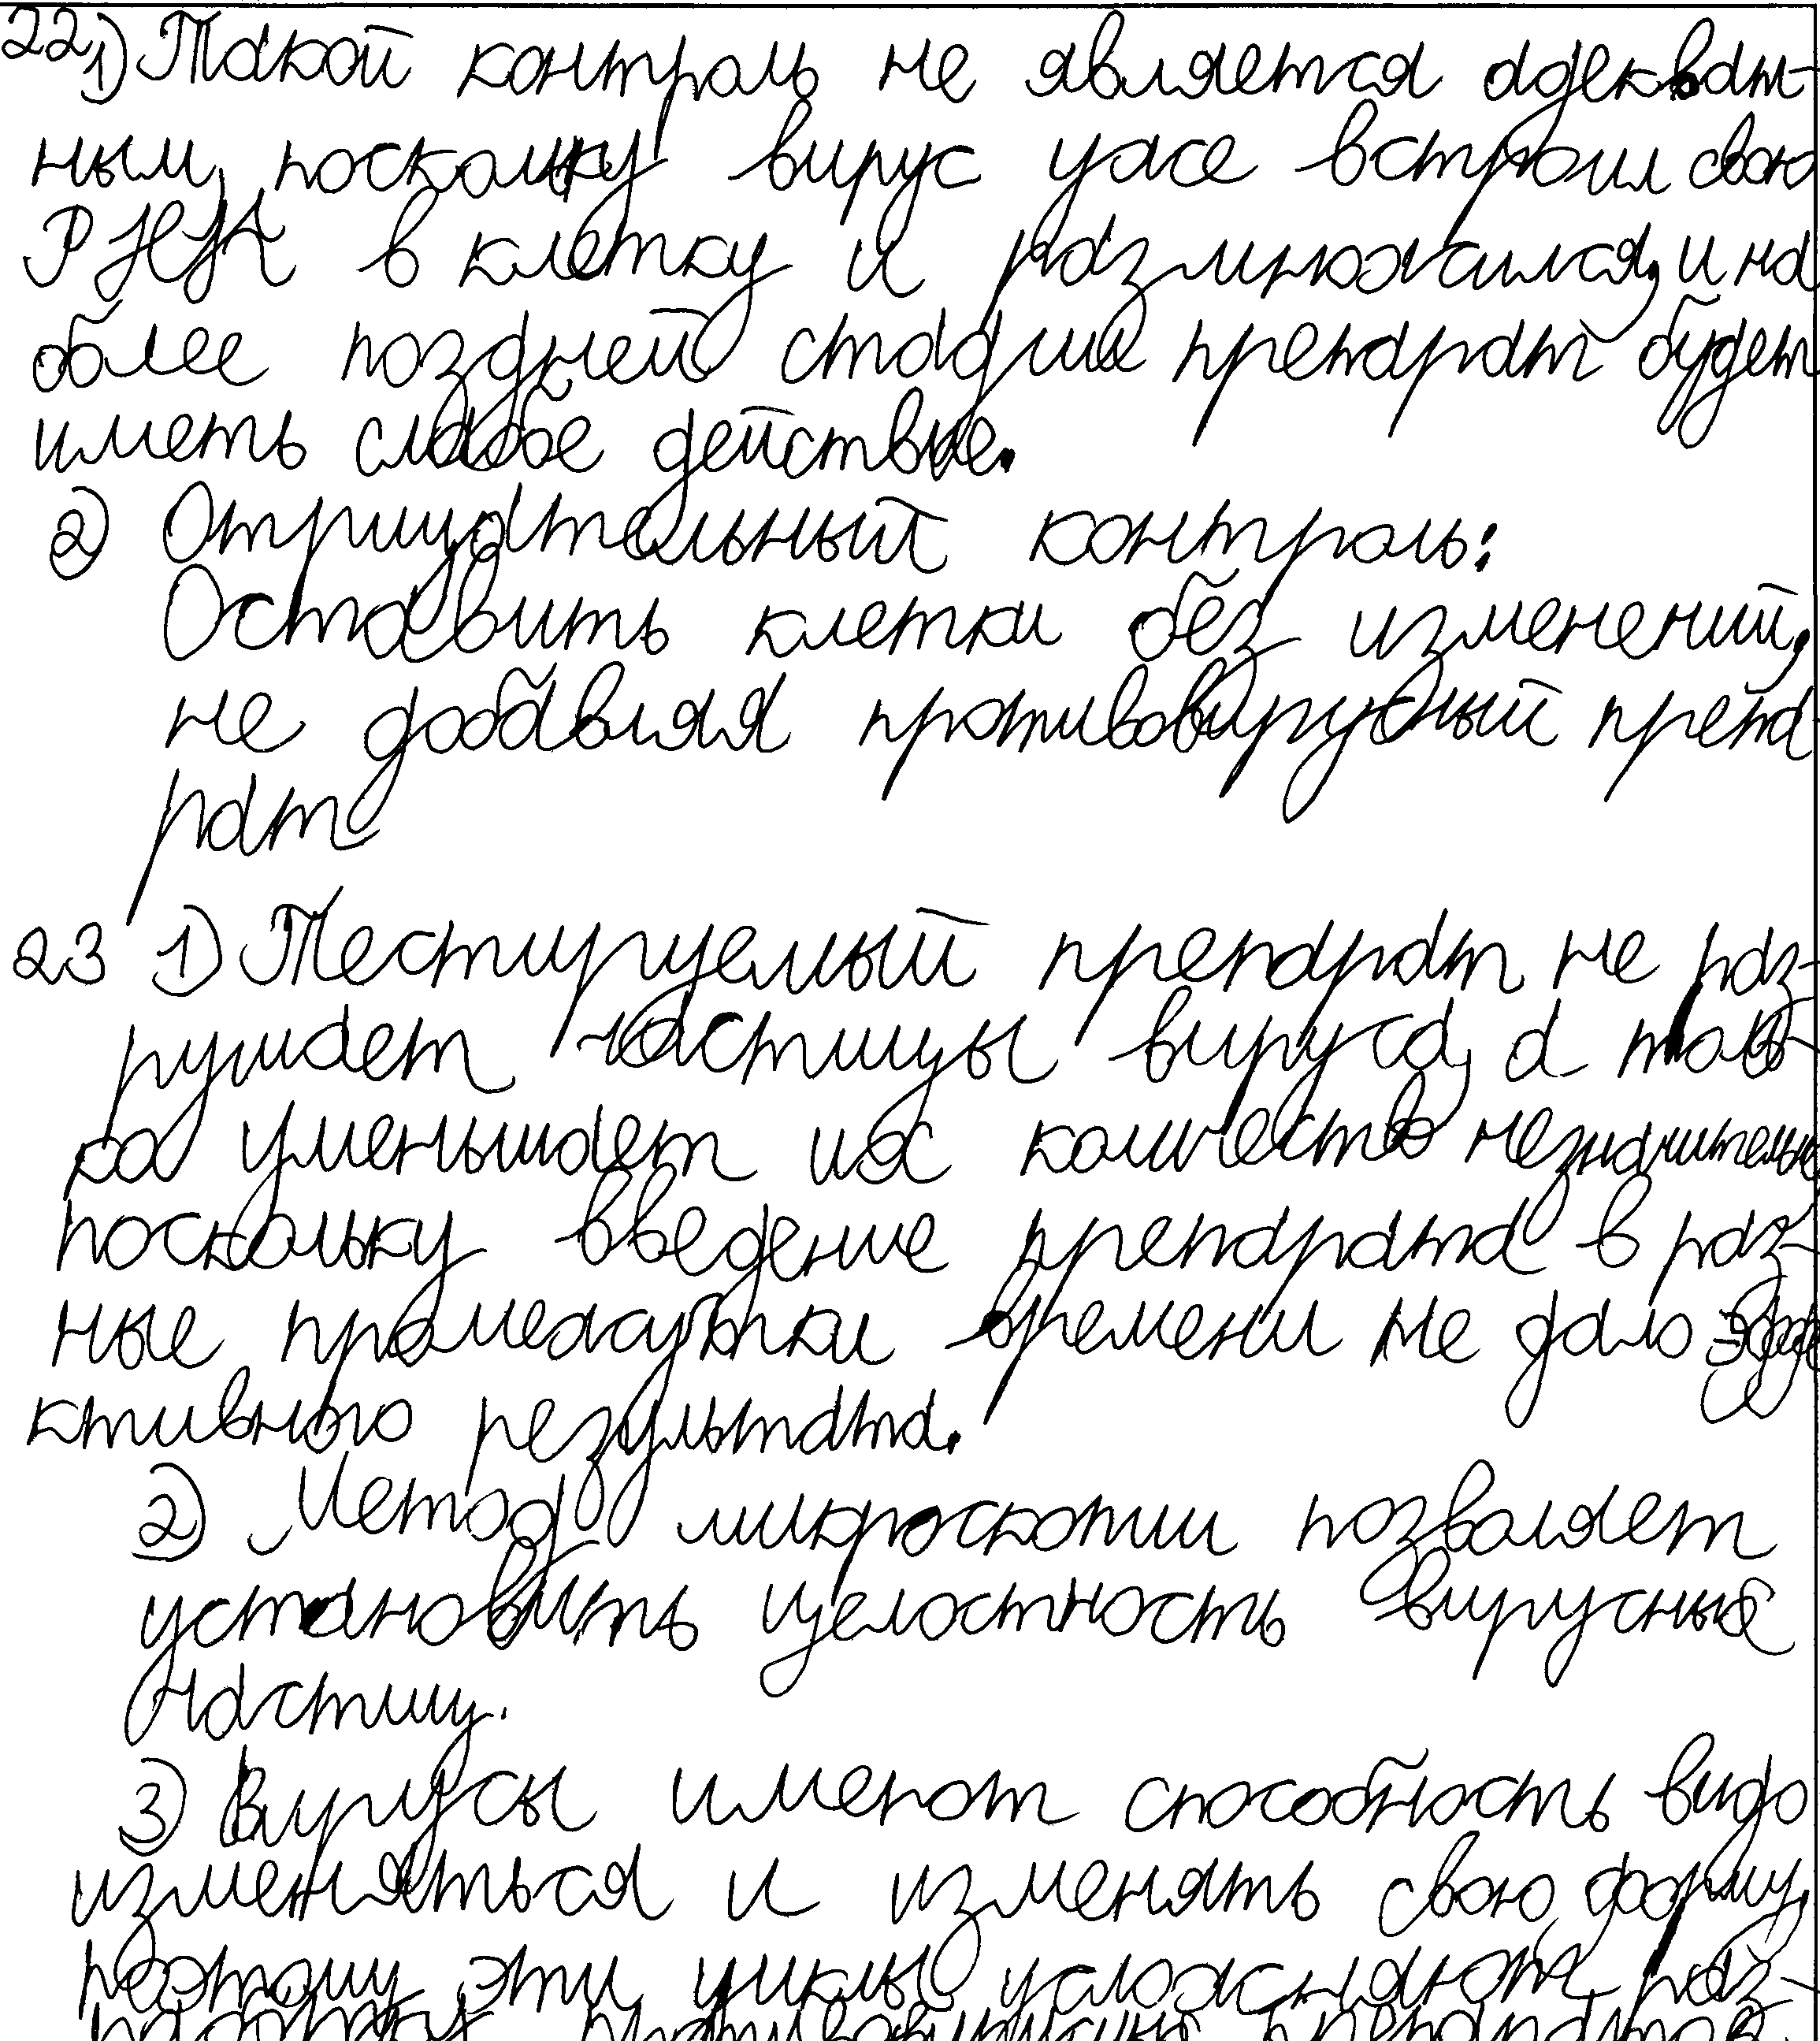 22 1) Такой контроль не является адекват-
ным, поскольку вирус уже встроил свою
РНК в клетку и размножился, и на
более поздней стадии препарат будет
иметь слабое действие.
2) Отрицательный контроль:
Оставить клетки без изменений,
не добавляя противовирусный препа
рат
23 1) Тестируемый препарат не раз-
рушает частицы вируса, а толь-
ко уменьшает их количество незначительно
поскольку введение препарата в раз-
ные промежутки времени не дало эффе
ктивного результата.
2) Метод микроскопии позволяет
установить целостность вирусных
частиц.
3) Вирусы имеют способность видо
изменяться и изменять свою форму,
поэтому эти циклы усложняют раз-
работку противовирусных препаратов.